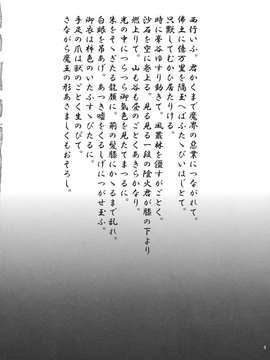 西行いふ。君かくまで魔界の悪業につながれて。
佛土に億万里を隔玉へばふたゝびいはじとて。
只默してむかひ居たりける。
時に峯谷ゆすり動きて。風叢林を僵すがごとく。
沙石を空に巻上る。見る見る一段の陰火君が膝の下より
燃上りて。山も谷も昼のごとくあきらかなり。
光の中につらつら御氣色を見たてまつるに。
朱をそゝぎたる龍顔に。荊の髪膝にかゝるまで乱れ。
白眼を吊あげ。あつき嘘をくるしげにつがせ玉ふ。
御衣は柿色のいたふすゝびたるに。
手足の爪は獣のごとく生のびて。
さながら魔王の形あさましくもおそろし。